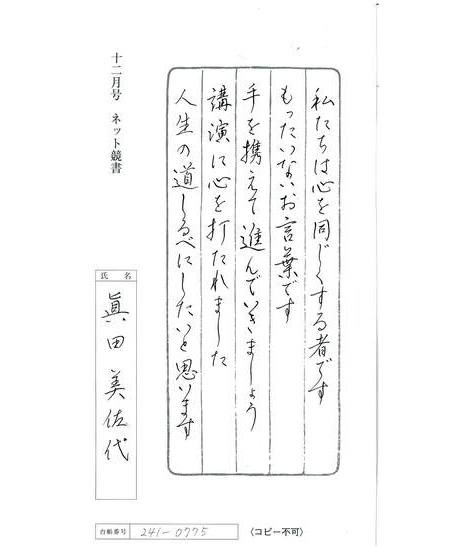 私たちは心を同じくする者です
もったいないお言葉です
手を携えて進んでいきましょう
講演に心を打たれました
人生の道しるべにしたいと思います
十二月号 ネット競書
氏名
眞田美佐代
台帳番号 241-0775
〈コピー不可〉